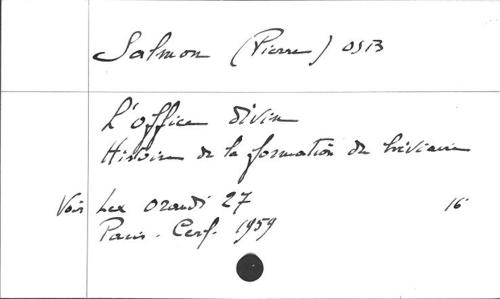 Salmon (Pierre) OSB
L'office divin
Histoire de la formation du bréviaire
Voir Lex orandi 27 16°
Paris. Cerf. 1959